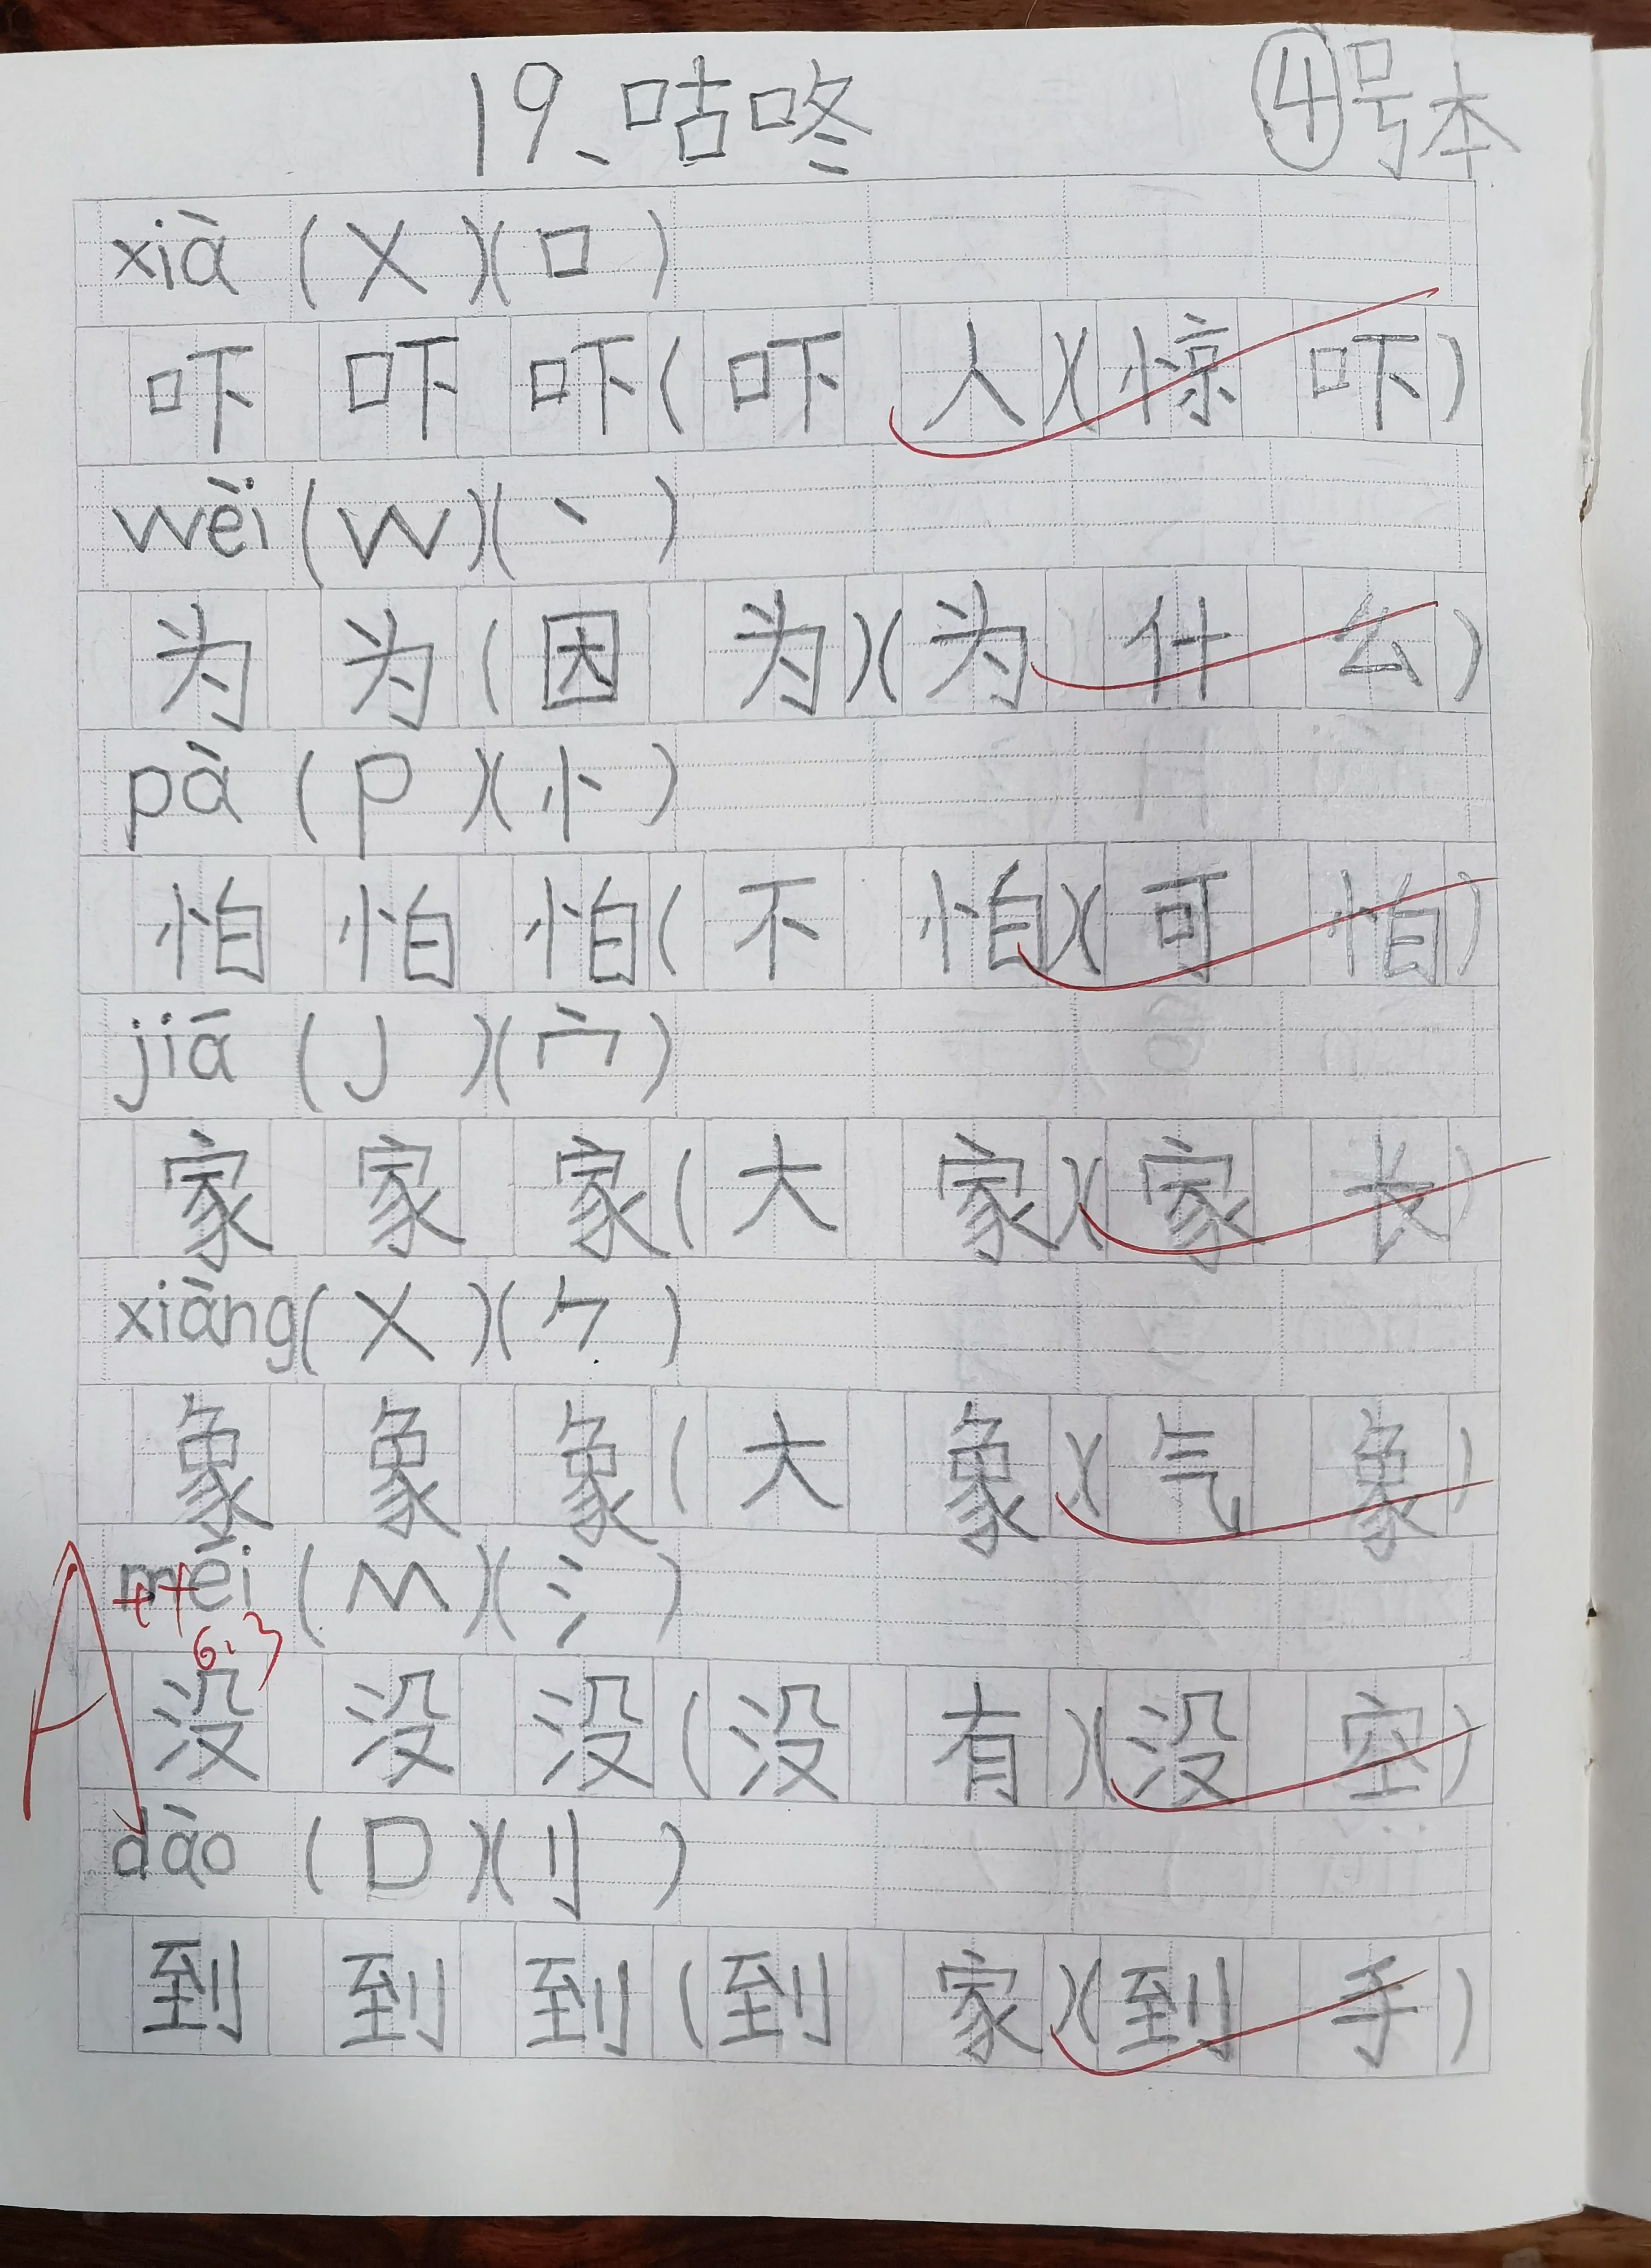 19、咕咚 ④号本
xià (X)(口)
吓 吓 吓(吓人)(惊吓)
wèi (W)(丶)
为 为(因为)(为什么)
pà (P)(忄)
怕 怕 怕(不怕)(可怕)
jiā (J)(宀)
家 家 家(大家)(家长)
xiàng(X)(⺈)
象 象 象(大象)(气象)
méi (M)(氵)
A++
6.3
没 没 没(没有)(没空)
dào (D)(刂)
到 到 到(到家)(到手)